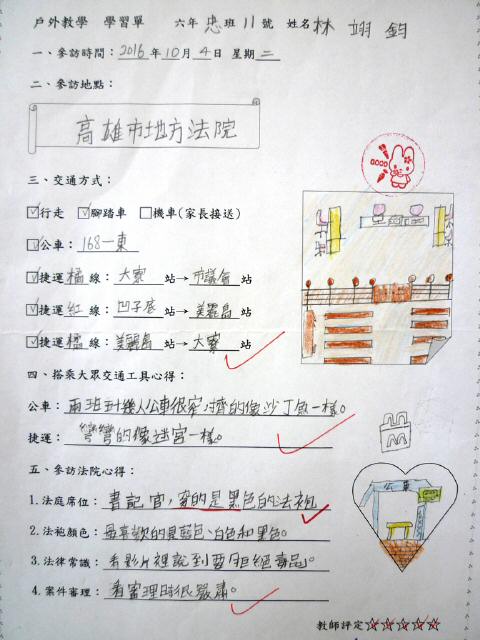 戶外教學 學習單 六年忠班11號 姓名林翊鈞
一、參訪時間：2016年10月4日 星期二
二、參訪地點：
高雄市地方法院
三、交通方式：
☑行走 ☑腳踏車 □機車(家長接送)
☑公車：168一東
☑捷運橘線：大寮站→市議會站
☑捷運紅線：凹子底站→美麗島站
☑捷運橘線：美麗島站→大寮站
四、搭乘大眾交通工具心得：
公車：兩班五十幾人公車很窄,擠的像沙丁魚一樣。
捷運：彎彎的像迷宮一樣。
五、參訪法院心得：
1.法庭席位：書記官,穿的是黑色的法袍
公車
2.法袍顏色：最喜歡的是藍色、白色和黑色。
3.法律常識：看影片裡說到要拒絕毒品。
4.案件審理：看審理時很嚴肅。
教師評定☆☆☆☆☆